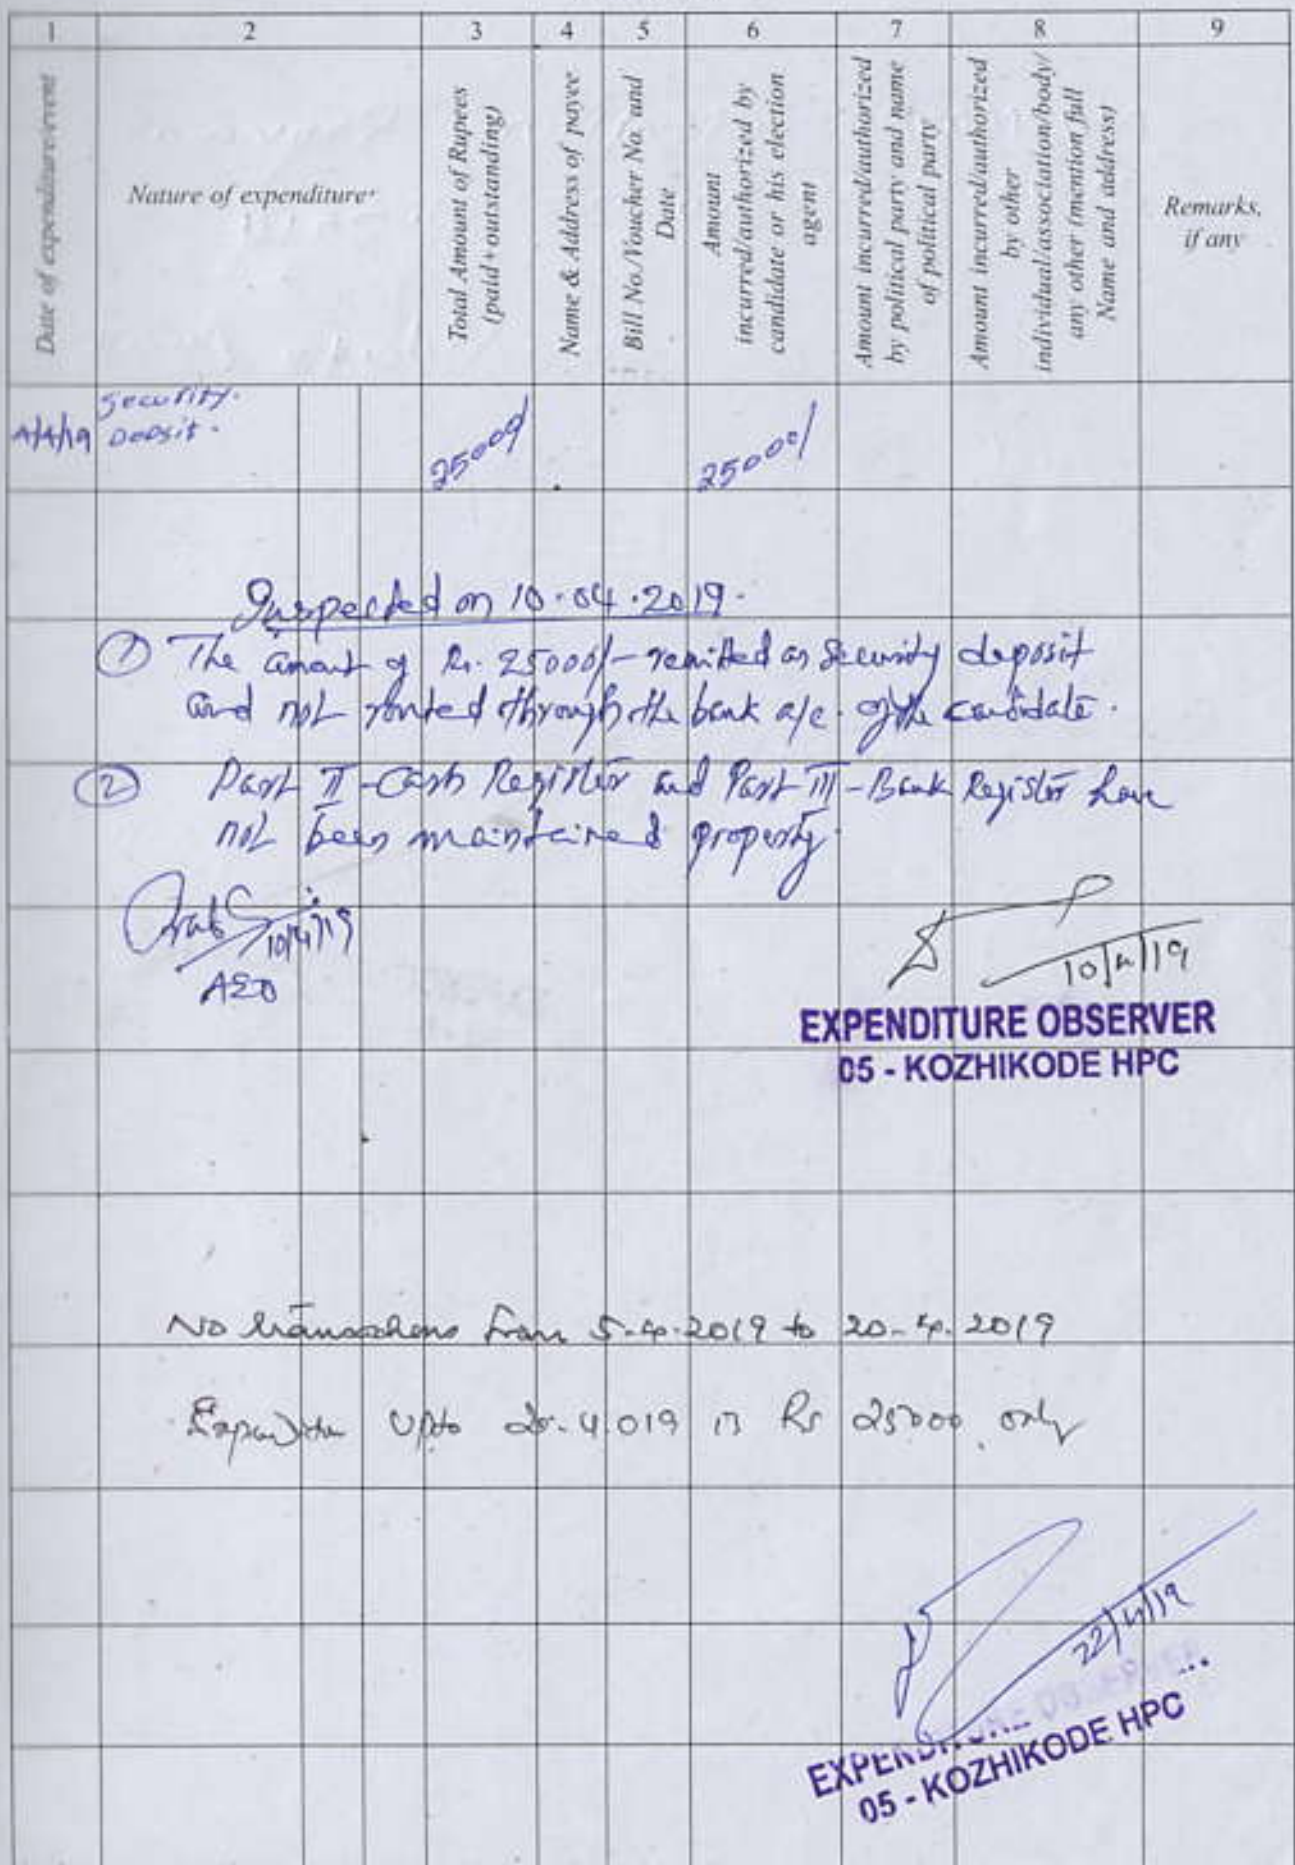 1 2 3 4 5 6 7 8 9
Date of expenditure/event
Nature of expenditure
Total Amount of Rupees
(paid+outstanding)
Name & Address of payee
Bill No./Voucher No. and
Date
Amount
incurred/authorized by
candidate or his election
agent
Amount incurred/authorized
by political party and name
of political party
Amount incurred/authorized
by other
individual/association/body/
any other (mention full
Name and address)
Remarks,
if any
4/4/19 Security Deosit. 25000/ 25000/
Inspected on 10.04.2019.
① The amout of Rs. 25000/- remitted as Security deposit
and not routed through the bank a/c. of the candidate.
② Part II - Cash Register and Part III - Bank Register have
not been maintained property.
10/4/19
AEO
10/4/19
EXPENDITURE OBSERVER
05 - KOZHIKODE HPC
No transactions from 5-4-2019 to 20-4-2019
Expenditure Upto 20.4.019 is Rs 25000 only
22/4/19
EXPENDITURE OBSERVER
05 - KOZHIKODE HPC